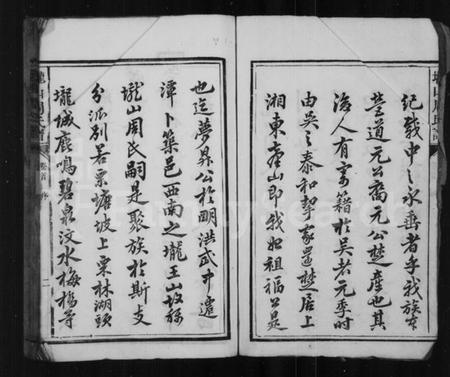 紀載中之永垂者乎我族本
營道元公裔元公楚產也其
後人有寄籍於吳者元季時
由吳之泰和挈家還楚居上
湘東臺山即我始祖福公是
也迄夢昇公於明洪武中遷
潭卜築邑西南之壠王山故稱
壠山周氏嗣是聚族於斯支
分派別若栗塘坡上栗林湖頭
壠城鹿鳴碧泉汶水梅橋等